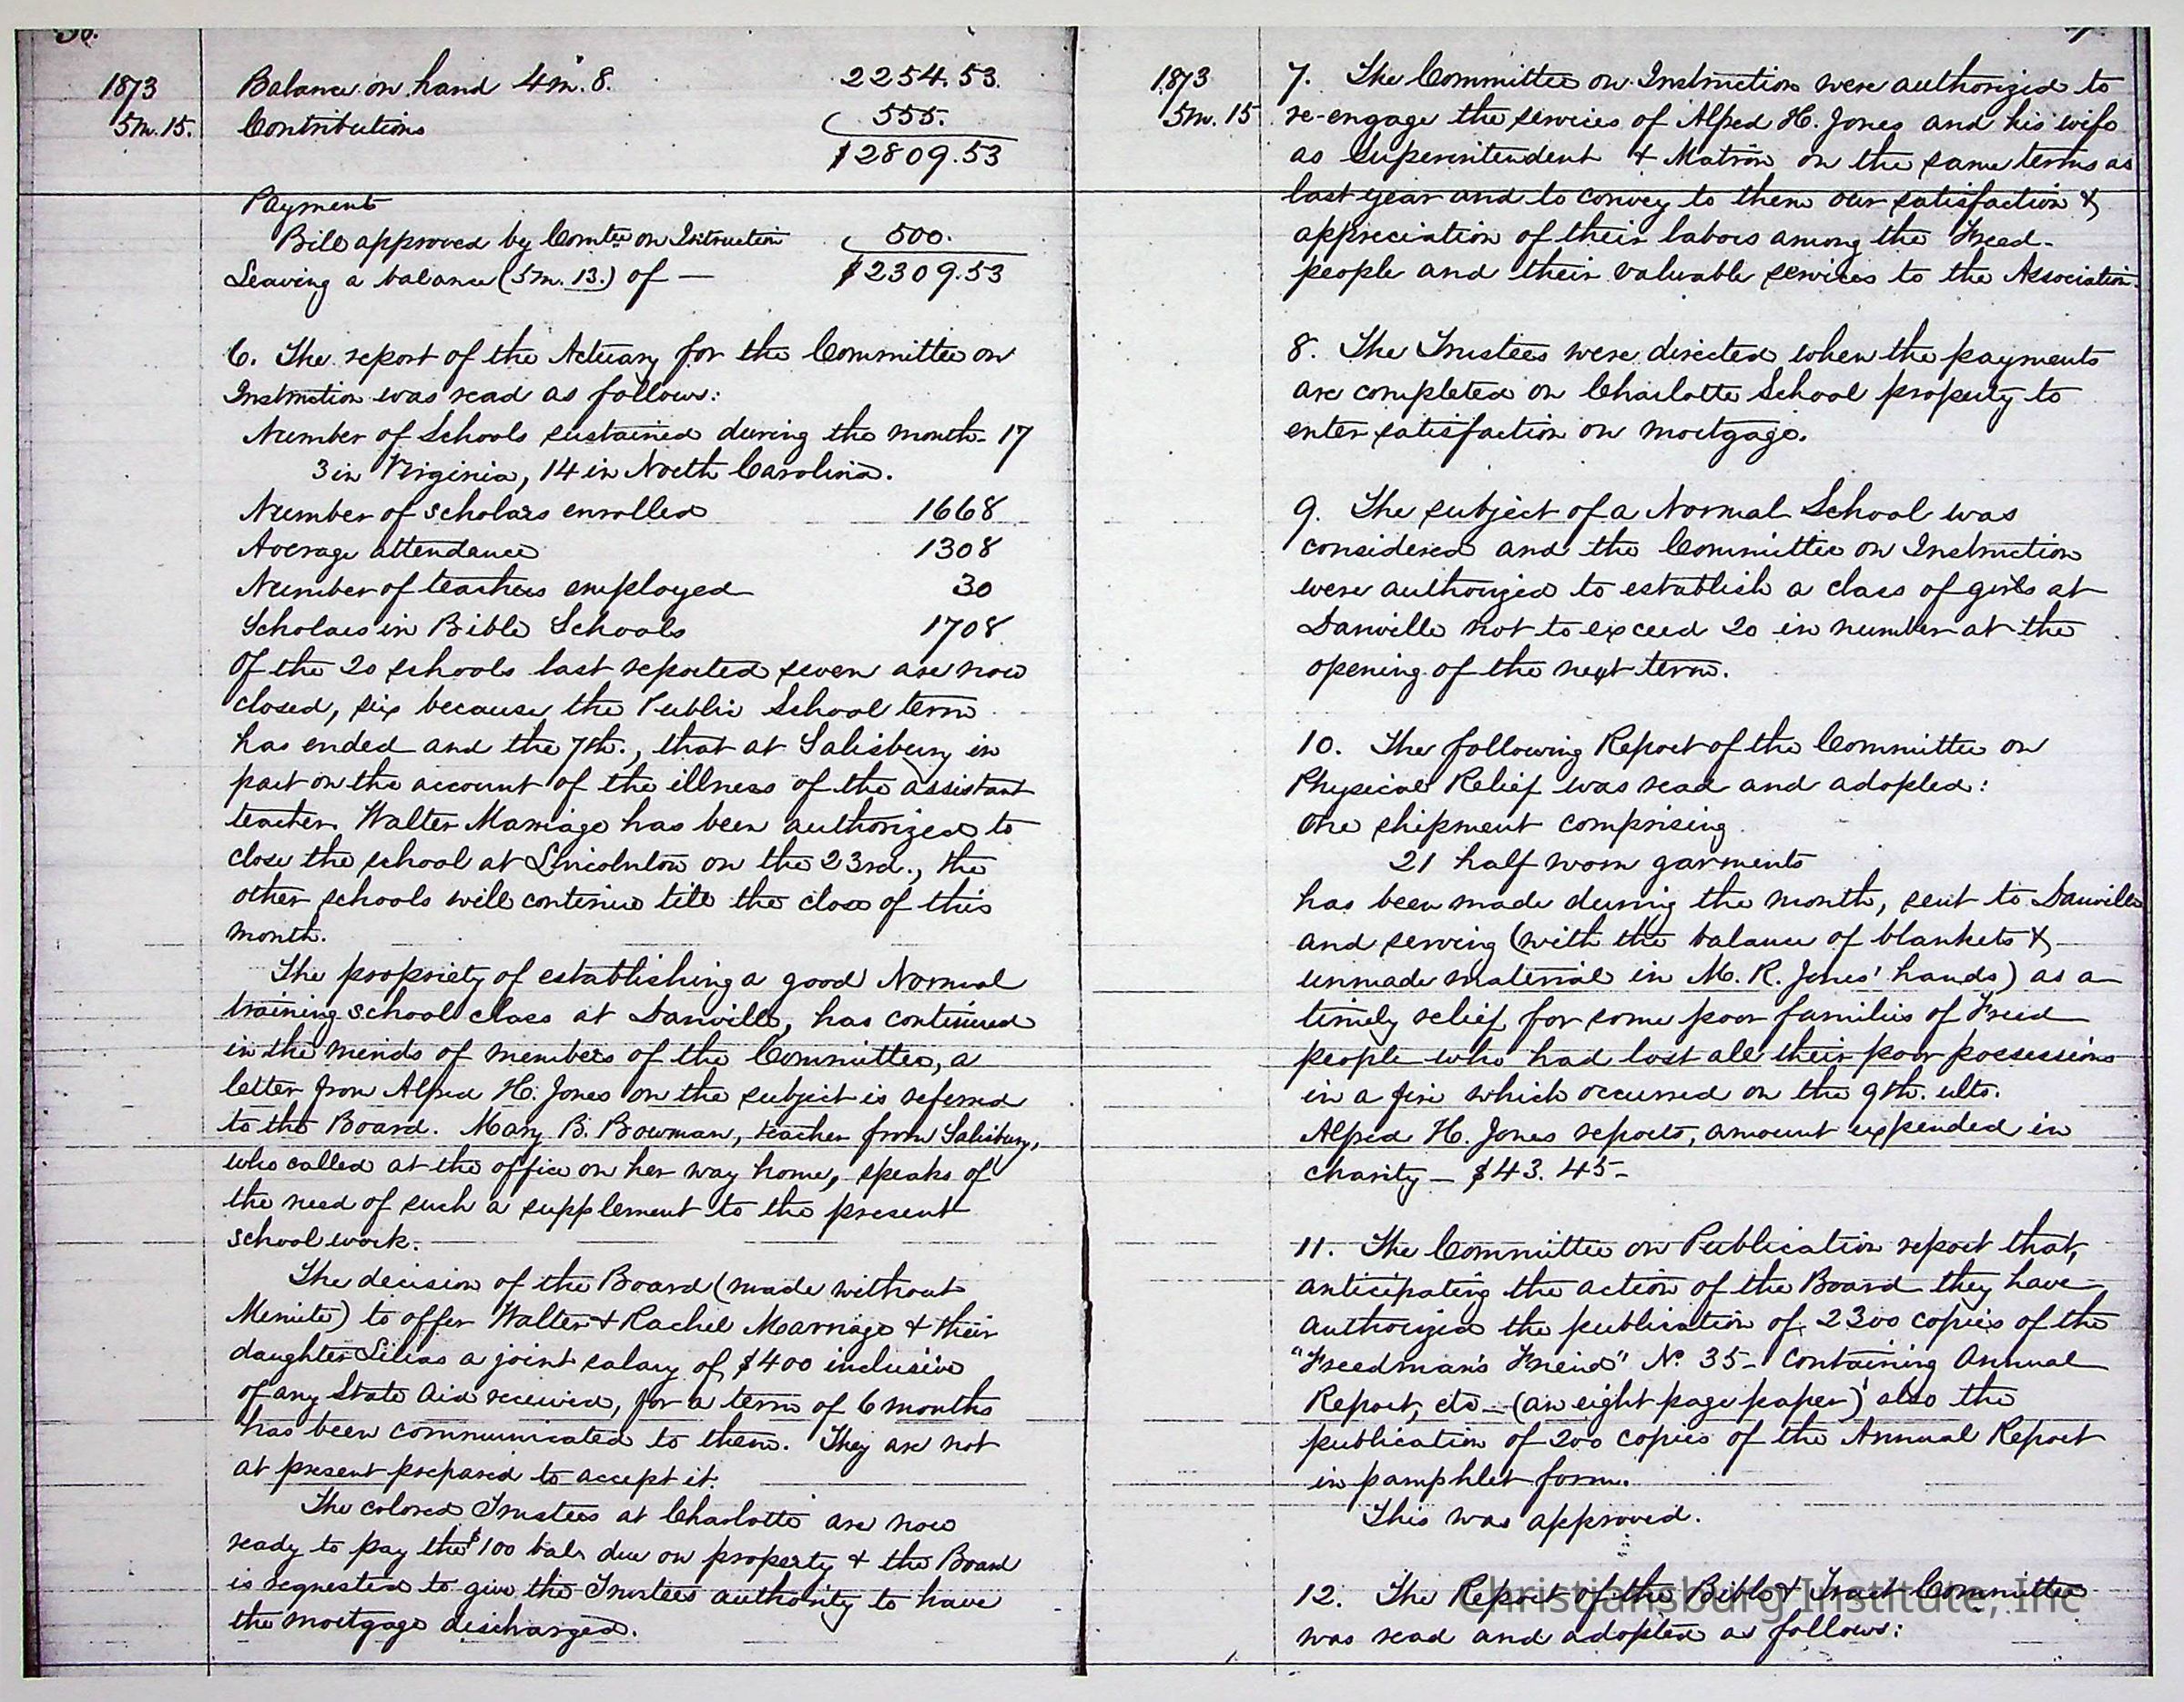 1873
5m. 15.
Balance on hand 4m. 8. 2254.53.
Contributions 555.
$2809.53
Payment
Bill approved by Comtee on Istruction 500.
Leaving a balance (5m. 13.) of — $2309.53
6. The report of the Actuary for the Committee on
Instruction was read as follows:
Number of Schools sustained during the month - 17
3 in Virginia, 14 in North Carolina.
Number of scholars enrolled 1668
Average attendance 1308
Number of teachers employed 30
Scholars in Bible Schools 1708
Of the 20 schools last reported seven are now
closed, six because the Public School term
has ended and the 7th., that at Salisbury in
part on the account of the illness of the assistant
teacher. Walter Marriage has been authorized to
close the school at Lincolnton on the 23rd., the
other schools will continue till the close of this
month.
The propriety of establishing a good Normal
training school class at Danville, has continued
in the minds of members of the Committee, a
letter from Alfred H. Jones on the subject is referred
to the Board. Mary B. Bowman, teacher from Salisbury,
who called at the office on her way home, speaks of
the need of such a supplement to the present
school work.
The decision of the Board (made without
Minute) to offer Walter & Rachel Marriage & their
daughter Lilias a joint salary of $400 inclusive
of any State Aid received, for a term of 6 months
has been communicated to them. They are not
at present prepared to accept it.
The colored Trustees at Charlotte are now
ready to pay the $100 bal. due on property & the Board
is requested to give the Trustees authority to have
the mortgage discharged.
1873
5m. 15
7. The Committee on Instruction were authorized to
re-engage the services of Alfred H. Jones and his wife
as Superintendent & Matron on the same terms as
last year and to convey to them our satisfaction &
appreciation of their labors among the Freed-
people and their valuable services to the Association.
8. The Trustees were directed when the payments
are completed on Charlotte School property to
enter satisfaction on mortgage.
9. The subject of a Normal School was
considered and the Committee on Instruction
were authorized to establish a class of girls at
Danville not to exceed 20 in number at the
opening of the next term.
10. The following Report of the Committee on
Physical Relief was read and adopted:
One shipment comprising
21 half worn garments
has been made during the month, sent to Danville
and serving (with the balance of blankets &
unmade material in M. R. Jones' hands) as a
timely relief for some poor families of Freed
people who had lost all their poor possessions
in a fire which occurred on the 9th. ulto.
Alfred H. Jones reports, amount expended in
charity — $43.45 -
11. The Committee on Publication report that,
anticipating the action of the Board they have
authorized the publication of 2300 copies of the
"Freedman's Friend" No. 35 - containing Annual
Report, etc — (an eight page paper) also the
publication of 200 copies of the Annual Report
in pamphlet form.
This was approved.
12. The Report of the Bible & Tract Committee
was read and adopted as follows:
Christiansburg Institute, Inc